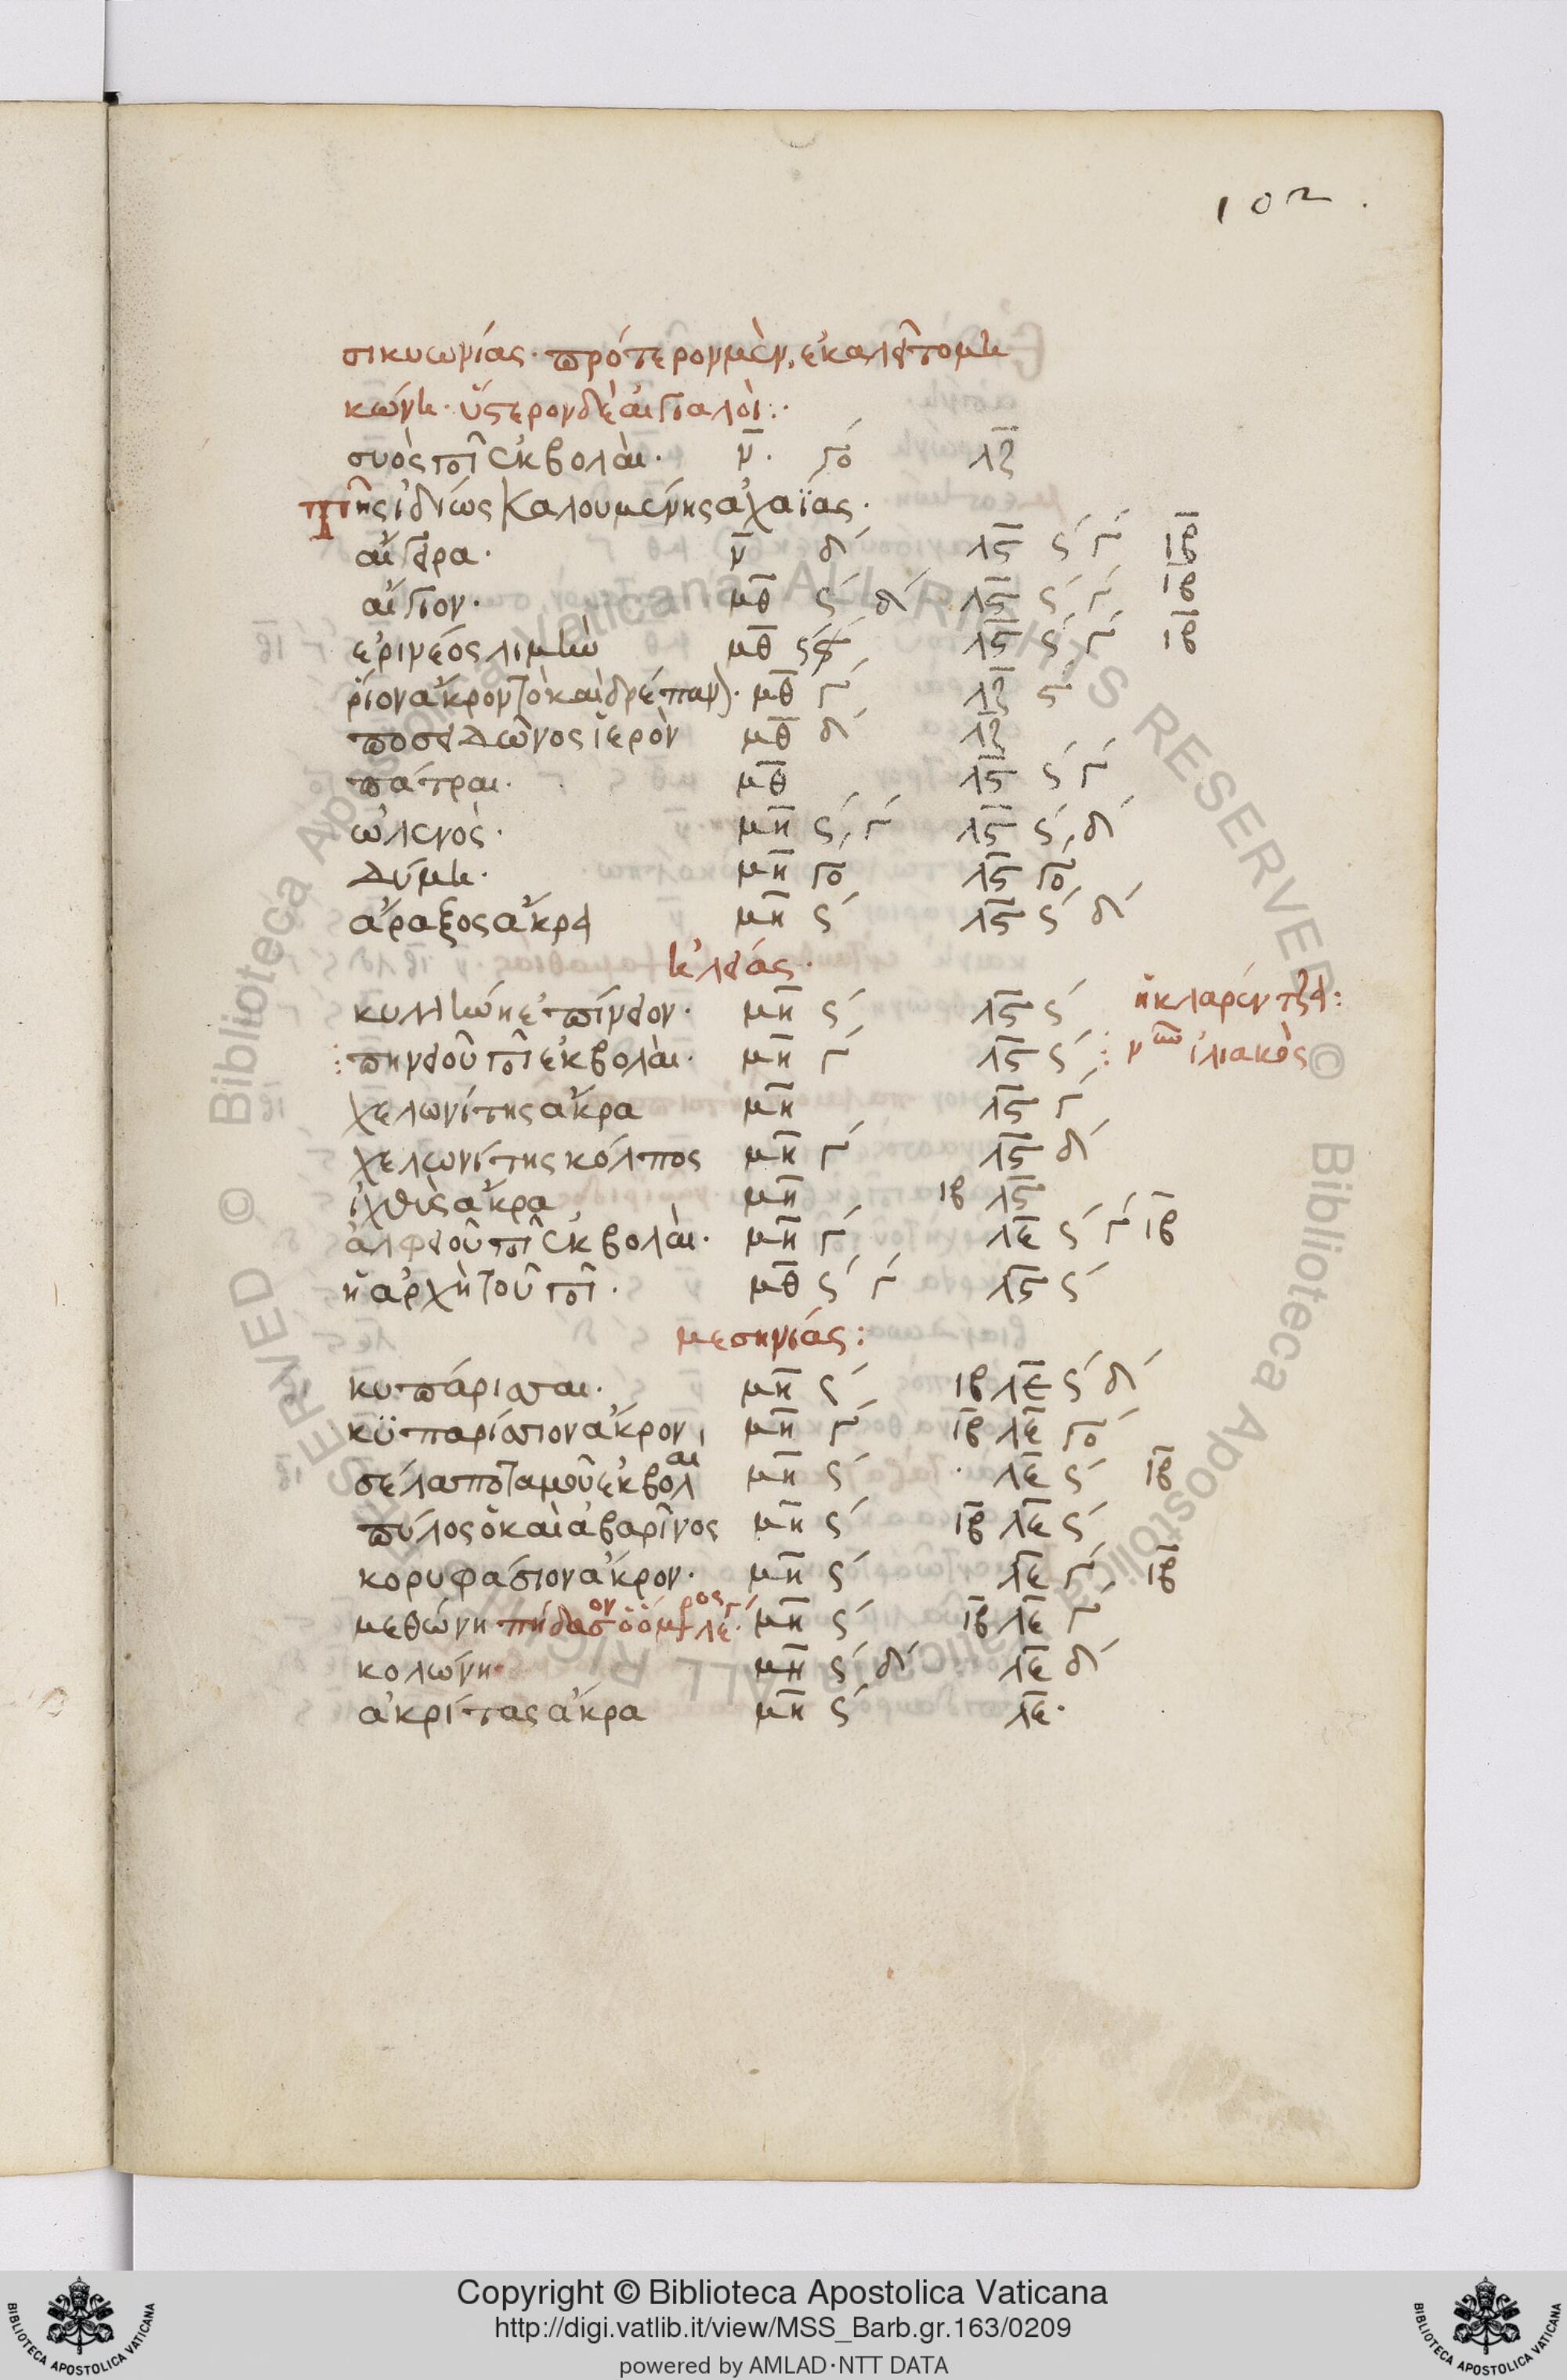 102.
σικυωνίας· πρότερον μὲν, ἐκαλεῖτο μη
κώνη· ὕστερον δὲ αἰγιαλοὶ:·
συὸς ποτ ἐκβολαὶ· ν̅· γο λζ̅
Τῆς ἰδίως καλουμένης ἀχαΐας·
αἴγειρα· ν̅ δ´ λς̅ ς´ γ´ ιβ̅
αἴγιον· μθ̅ ς´ δ´ λς̅ ς´ γ´ ιβ
ἐρινεός λιμὴν μθ̅ λς̅ ς´ γ´ ιβ̅
ῥίον ἄκρον τὸ καὶ δρέπαν)· μθ̅ γ´ λζ̅ ς´
ποσειδῶνος ἱερὸν μθ̅ δ´ λζ̅
πάτραι· μθ̅ λς̅ ς´ γ´
ὠλενὸς· μη̅ ς´ γ´ λς̅ ς´ δ´
Δύμη· μη̅ γο λς̅ γο
ἄραξος ἄκρα μη̅ ς´ λς̅ ς´ δ´
ἠλείας·
κυλλήνη ἐπίνειον· μη̅ ς´ λς̅ ς´ ἡ κλαρέντζα:
πηνειοῦ ποτ ἐκβολαὶ· μη̅ γ´ λς̅ ς´ : ν ἰλιακὸς
χελωνίτης ἄκρα μη̅ λς̅ γ´
χελωνίτης κόλπος μη̅ γ´ λς̅ δ´
ἰχθὺς ἄκρα μη̅ ιβ λς̅
ἀλφειοῦ ποτ ἐκβολαὶ· μη̅ γ´ λε̅ ς´ γ´ ιβ̅
ἡ ἀρχὴ τοῦ ποτ· μθ̅ ς´ γ´ λς̅ ς´
μεσηνίας:
κυπάρισσαι· μη̅ ς´ ιβ λε̅ ς´ δ´
κϋπαρίσσιον ἄκρον, μη̅ γ´ ιβ̅ λε̅ γο´
σέλας ποταμοῦ ἐκβολαι μη̅ ς´ · λε̅ ς´ ιβ̅
πύλος ὁ καὶ ἀβαρῖνος μη̅ ς´ ιβ̅ λε̅ ς´
κορυφάσιον ἄκρον· μη̅ ς´ λε̅ γ´ ιβ̅
μεθώνη πήδασον μη̅ ς´ ιβ̅ λε̅ γ´
κολώνη μη̅ ς´ δ´ λε̅ δ´
ἀκρίτας ἄκρα μη̅ ς´ λε̅·
Copyright © Biblioteca Apostolica Vaticana
http://digi.vatlib.it/view/MSS_Barb.gr.163/0209
powered by AMLAD·NTT DATA